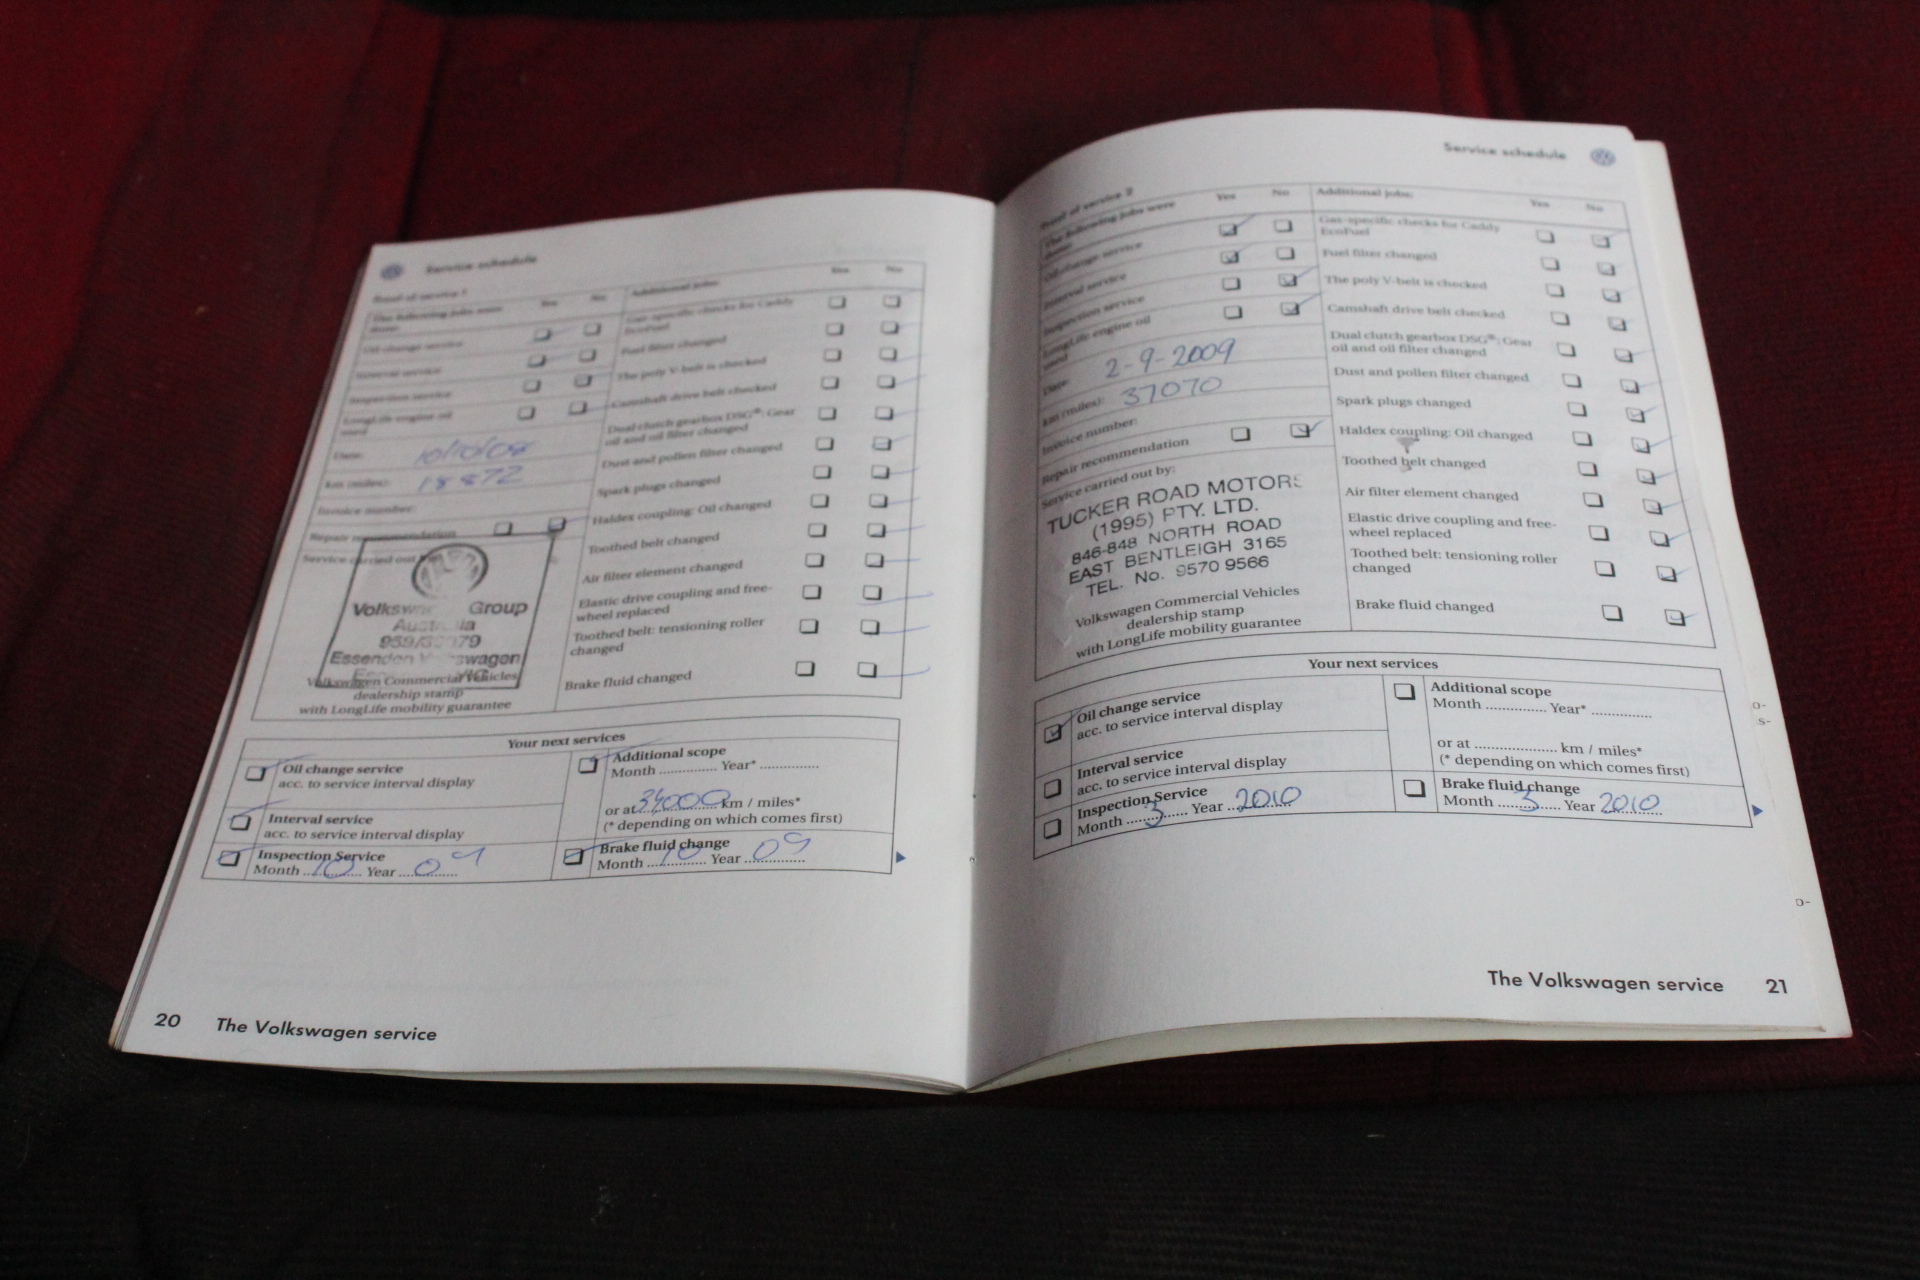 Service schedule
Proof of service 1
The following jobs were
done:
Yes
No
Oil change service
Interval service
Inspection service
LongLife engine oil
used
Date:
10/10/08
km (miles):
18872
Invoice number:
Repair recommendation
Service carried out
Volksw Group
Aust ia
Essendon V swagon
Volkswagen Commercial Vehicles
dealership stamp
with LongLife mobility guarantee
Additional jobs:
Yes
No
Gas-specific checks for Caddy
EcoFuel
Fuel filter changed
The poly V-belt is checked
Camshaft drive belt checked
Dual clutch gearbox DSG®: Gear
oil and oil filter changed
Dust and pollen filter changed
Spark plugs changed
Haldex coupling: Oil changed
Toothed belt changed
Air filter element changed
Elastic drive coupling and free-
wheel replaced
Toothed belt: tensioning roller
changed
Brake fluid changed
Your next services
Oil change service
acc. to service interval display
Interval service
acc. to service interval display
Inspection Service
Month 10 Year 09
Additional scope
Month ............... Year* ...............
or at 34000 km / miles*
(* depending on which comes first)
Brake fluid change
Month 10 Year 09
20 The Volkswagen service
Service schedule
Proof of service 2
The following jobs were
done:
Yes
No
Oil change service
Interval service
Inspection service
LongLife engine oil
used
Date:
2-9-2009
km (miles):
37070
Invoice number:
Repair recommendation
Service carried out by:
TUCKER ROAD MOTORS
(1995) PTY. LTD.
846-848 NORTH ROAD
EAST BENTLEIGH 3165
TEL. No. 9570 9566
Volkswagen Commercial Vehicles
dealership stamp
with LongLife mobility guarantee
Additional jobs:
Yes
No
Gas-specific checks for Caddy
EcoFuel
Fuel filter changed
The poly V-belt is checked
Camshaft drive belt checked
Dual clutch gearbox DSG®: Gear
oil and oil filter changed
Dust and pollen filter changed
Spark plugs changed
Haldex coupling: Oil changed
Toothed belt changed
Air filter element changed
Elastic drive coupling and free-
wheel replaced
Toothed belt: tensioning roller
changed
Brake fluid changed
Your next services
Oil change service
acc. to service interval display
Interval service
acc. to service interval display
Inspection Service
Month 3 Year 2010
Additional scope
Month ............... Year* ...............
or at .................... km / miles*
(* depending on which comes first)
Brake fluid change
Month 3 Year 2010
The Volkswagen service 21